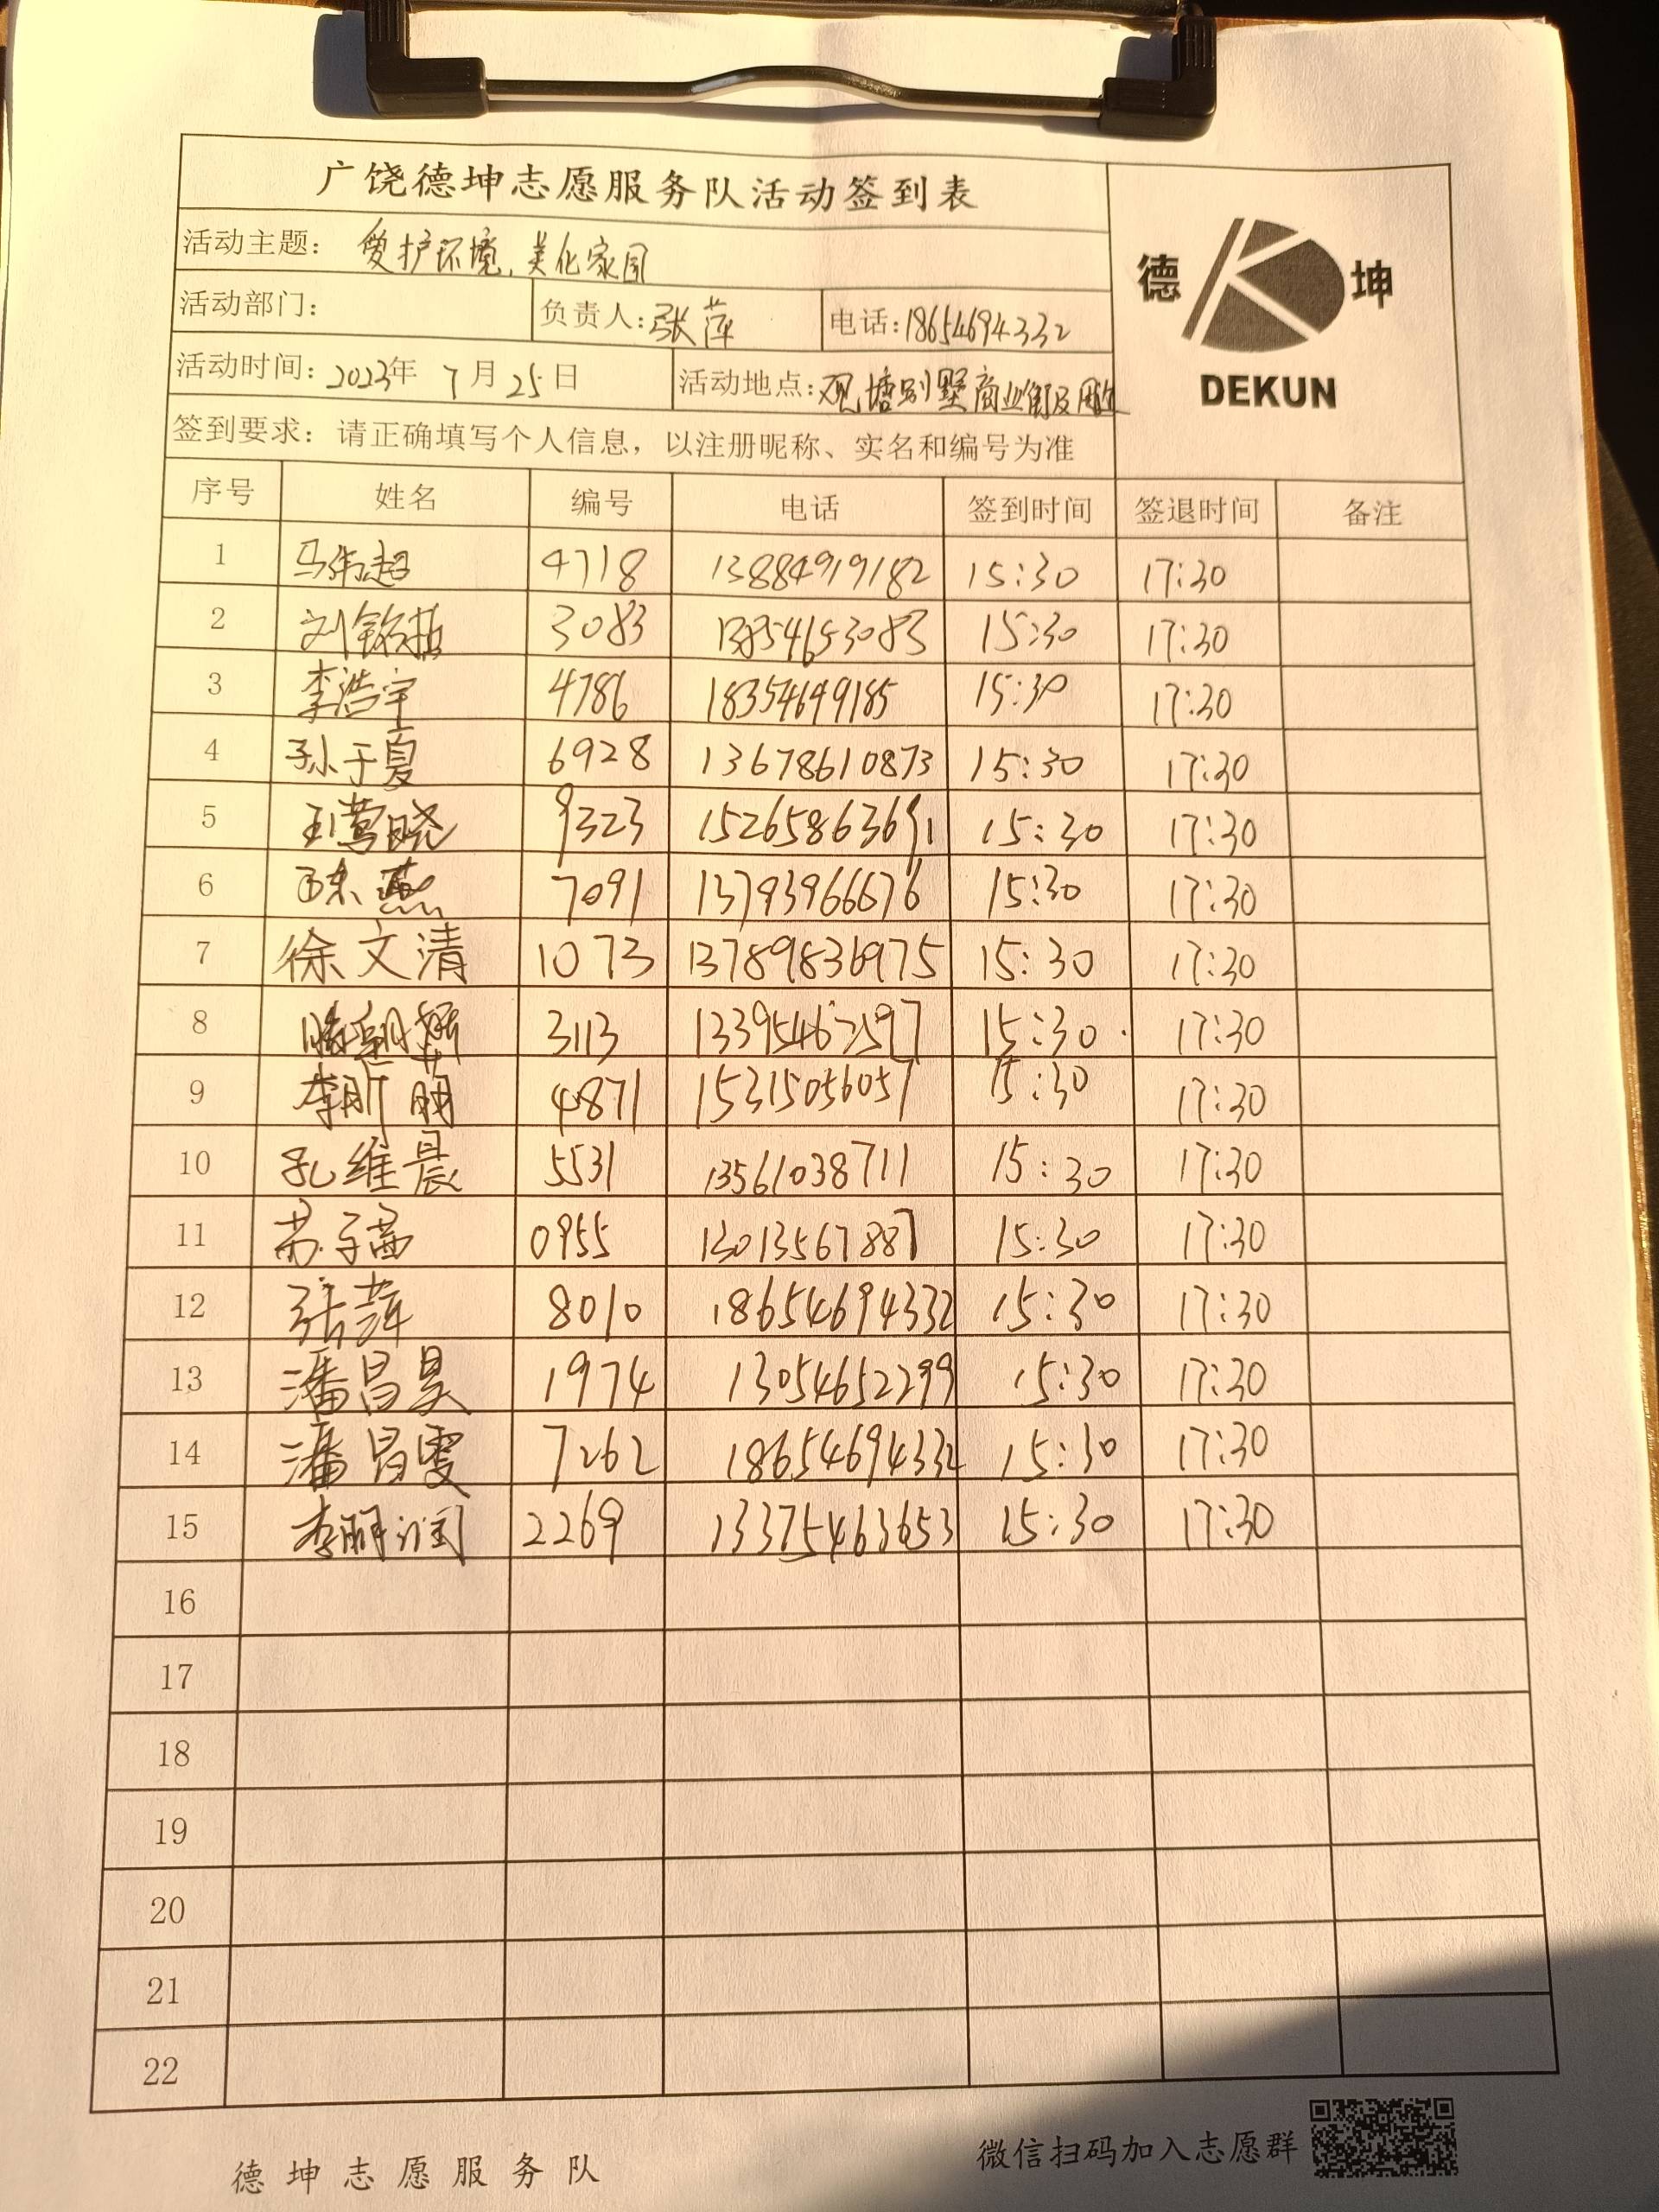 广饶德坤志愿服务队活动签到表
活动主题：爱护环境，美化家园
德 坤
活动部门： 负责人：张萍 电话：18654694332
活动时间：2023年 7月25日 活动地点：观塘别墅商业街及周边
DEKUN
签到要求：请正确填写个人信息，以注册昵称、实名和编号为准
序号 姓名 编号 电话 签到时间 签退时间 备注
1 马伟超 4718 13884919182 15:30 17:30
2 刘铭哲 3083 13854653083 15:30 17:30
3 李浩宇 4786 18354699185 15:30 17:30
4 孙于夏 6928 13678610873 15:30 17:30
5 王莺晓 9323 15265863691 15:30 17:30
6 陈燕 7091 13793966676 15:30 17:30
7 徐文清 1073 13789836975 15:30 17:30
8 3113 13395467597 15:30 17:30
9 李昕玥 4871 15315056057 15:30 17:30
10 孔维晨 5531 13561038711 15:30 17:30
11 苏子茜 0955 13013567887 15:30 17:30
12 张萍 8010 18654694332 15:30 17:30
13 潘昌昊 1974 13054652299 15:30 17:30
14 潘昌雯 7262 18654694332 15:30 17:30
15 李丽润 2269 13375463653 15:30 17:30
16
17
18
19
20
21
22
德坤志愿服务队 微信扫码加入志愿群